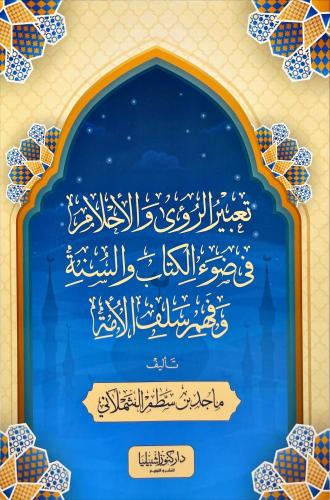 تعبير الرؤى والأحلام
في ضوء الكتاب والسنة
وفهم سلف الأمة
تأليف
ماجد بن سطم الشملاني
دار كنوز إشبيليا
للنشر والتوزيع